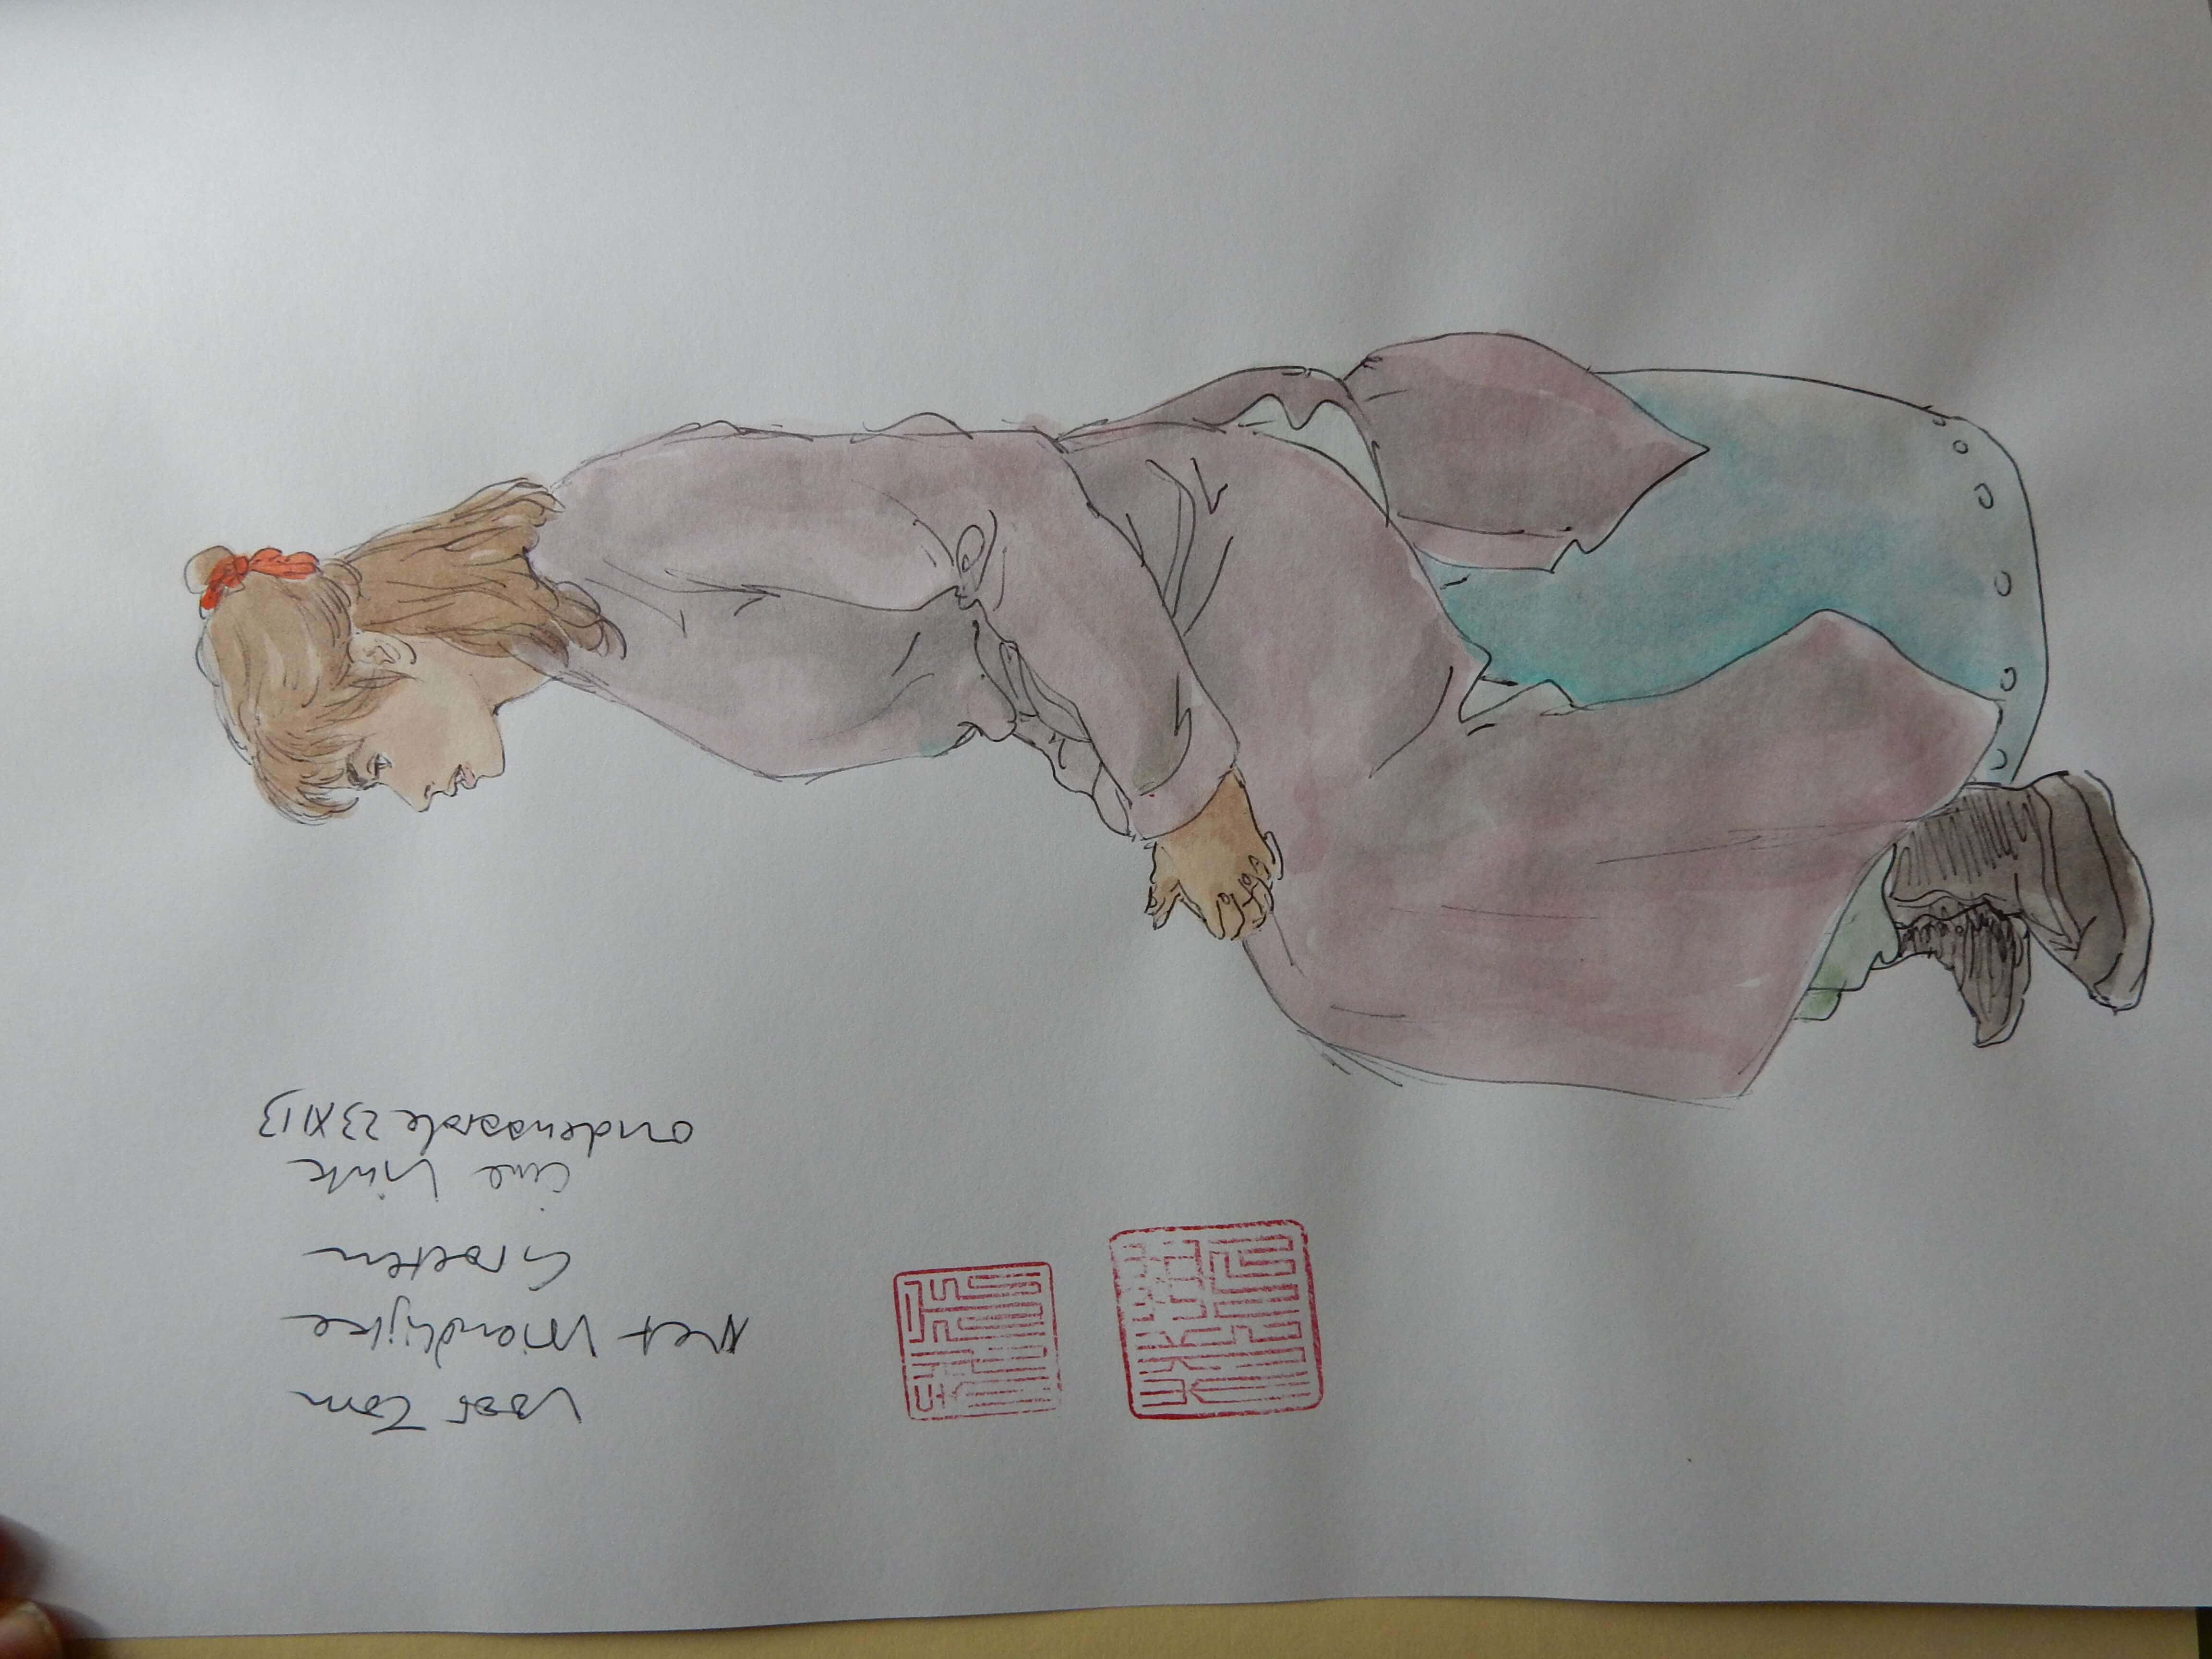 Voor Tom
Met Vriendlijke
Groeten
Cine Vink
Oudenaarde 23 XI 13